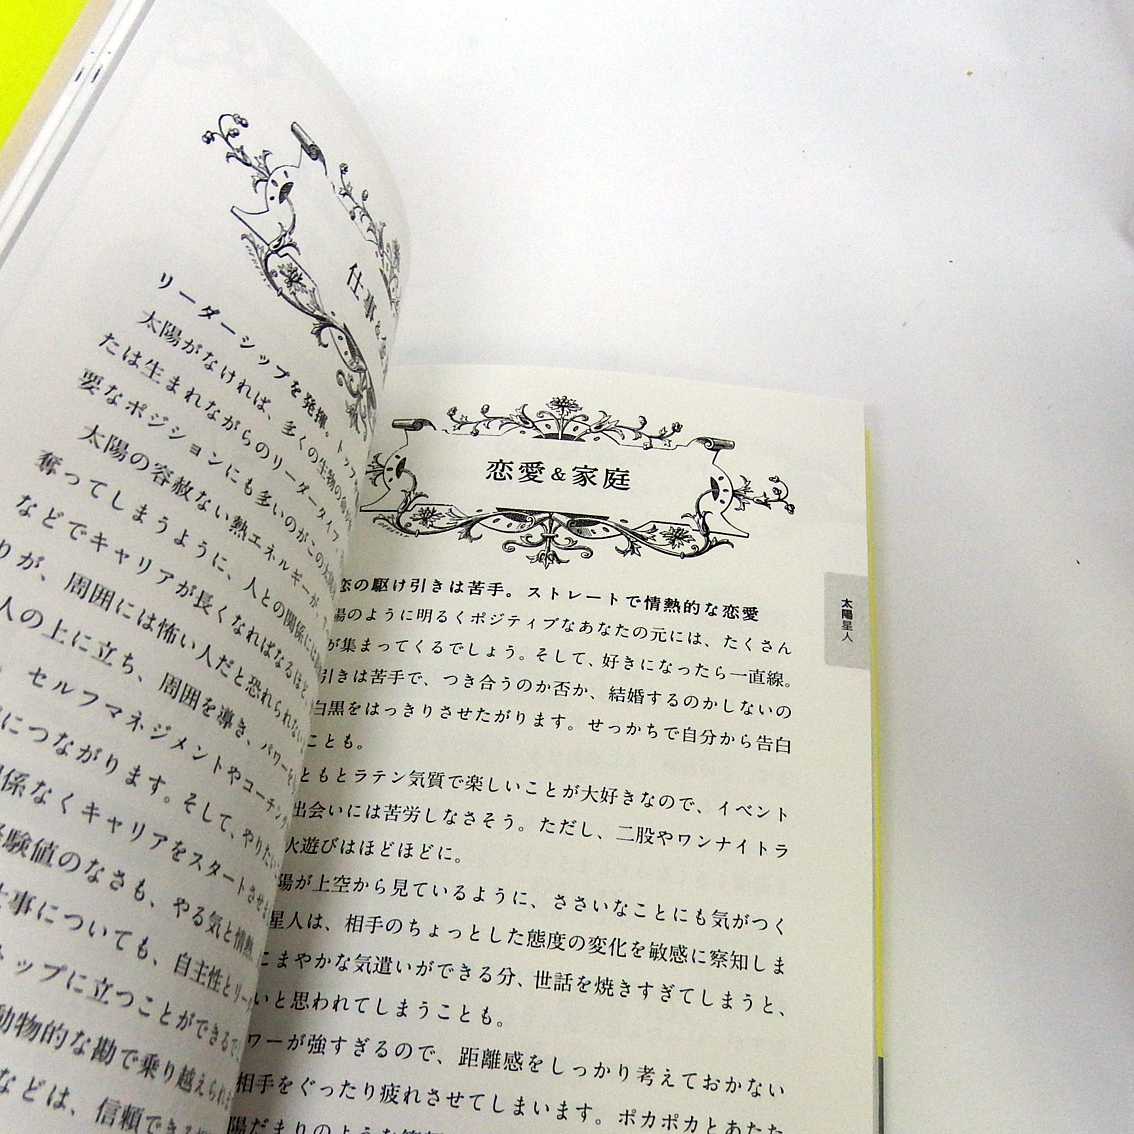 仕事&
リーダーシップを発揮。トップ
太陽がなければ、多くの生物の
たは生まれながらのリーダータイプ
要なポジションにも多いのがこの
太陽の容赦ない熱エネルギーが、
奪ってしまうように、人との関係には
などでキャリアが長くなればなるほど、
りが、周囲には怖い人だと恐れられない
人の上に立ち、周囲を導き、パワーを
、セルフマネジメントやコーチング
につながります。そして、やりたい
関係なくキャリアをスタートさせま
験値のなさも、やる気と情熱
仕事についても、自主性とリー
トップに立つことができるで
動物的な勘で乗り越えられま
などは、信頼できる
恋愛&家庭
恋の駆け引きは苦手。ストレートで情熱的な恋愛
陽のように明るくポジティブなあなたの元には、たくさん
が集まってくるでしょう。そして、好きになったら一直線。
引きは苦手で、つき合うのか否か、結婚するのかしないの
白黒をはっきりさせたがります。せっかちで自分から告白
ことも。
ともとラテン気質で楽しいことが大好きなので、イベント
出会いには苦労しなさそう。ただし、二股やワンナイトラ
火遊びはほどほどに。
陽が上空から見ているように、ささいなことにも気がつく
星人は、相手のちょっとした態度の変化を敏感に察知しま
こまやかな気遣いができる分、世話を焼きすぎてしまうと、
いと思われてしまうことも。
ワーが強すぎるので、距離感をしっかり考えておかない
相手をぐったり疲れさせてしまいます。ポカポカとあたた
陽だまりのような
太陽星人